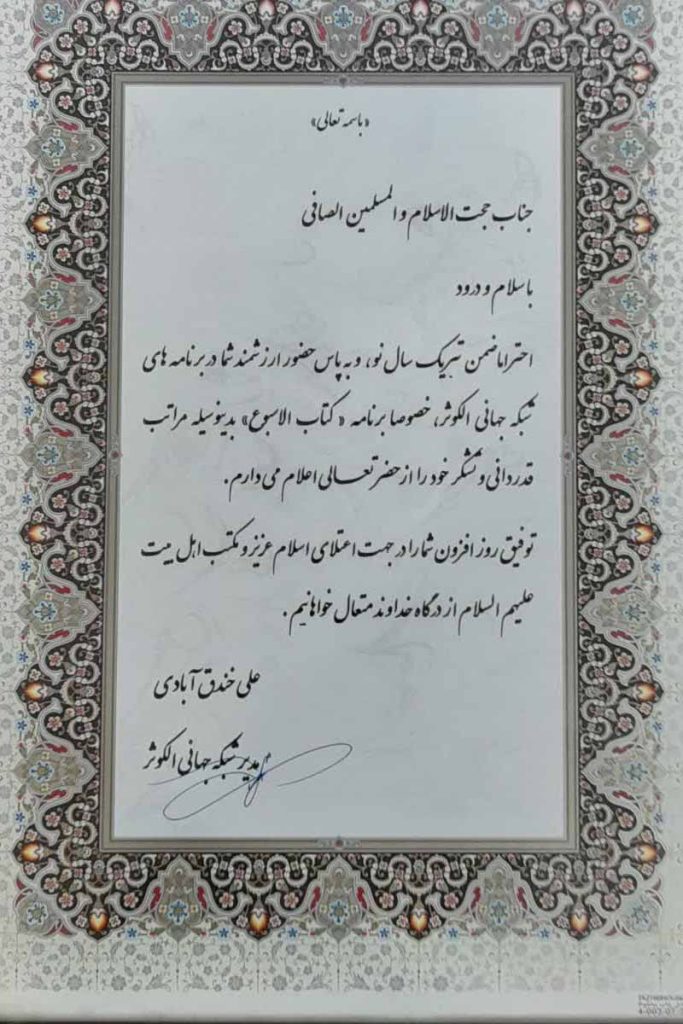 «باسمه تعالی»
جناب حجت الاسلام و المسلمین الصافی
با سلام و درود
احتراما ضمن تبریک سال نو، و به پاس حضور ارزشمند شما در برنامه های
شبکه جهانی الکوثر، خصوصا برنامه « کتاب الاسبوع» بدینوسیله مراتب
قدردانی و تشکر خود را از حضرتعالی اعلام می دارم.
توفیق روز افزون شما را در جهت اعتلای اسلام عزیز و مکتب اهل بیت
علیهم السلام از درگاه خداوند متعال خواهانیم.
علی خندق آبادی
مدیر شبکه جهانی الکوثر